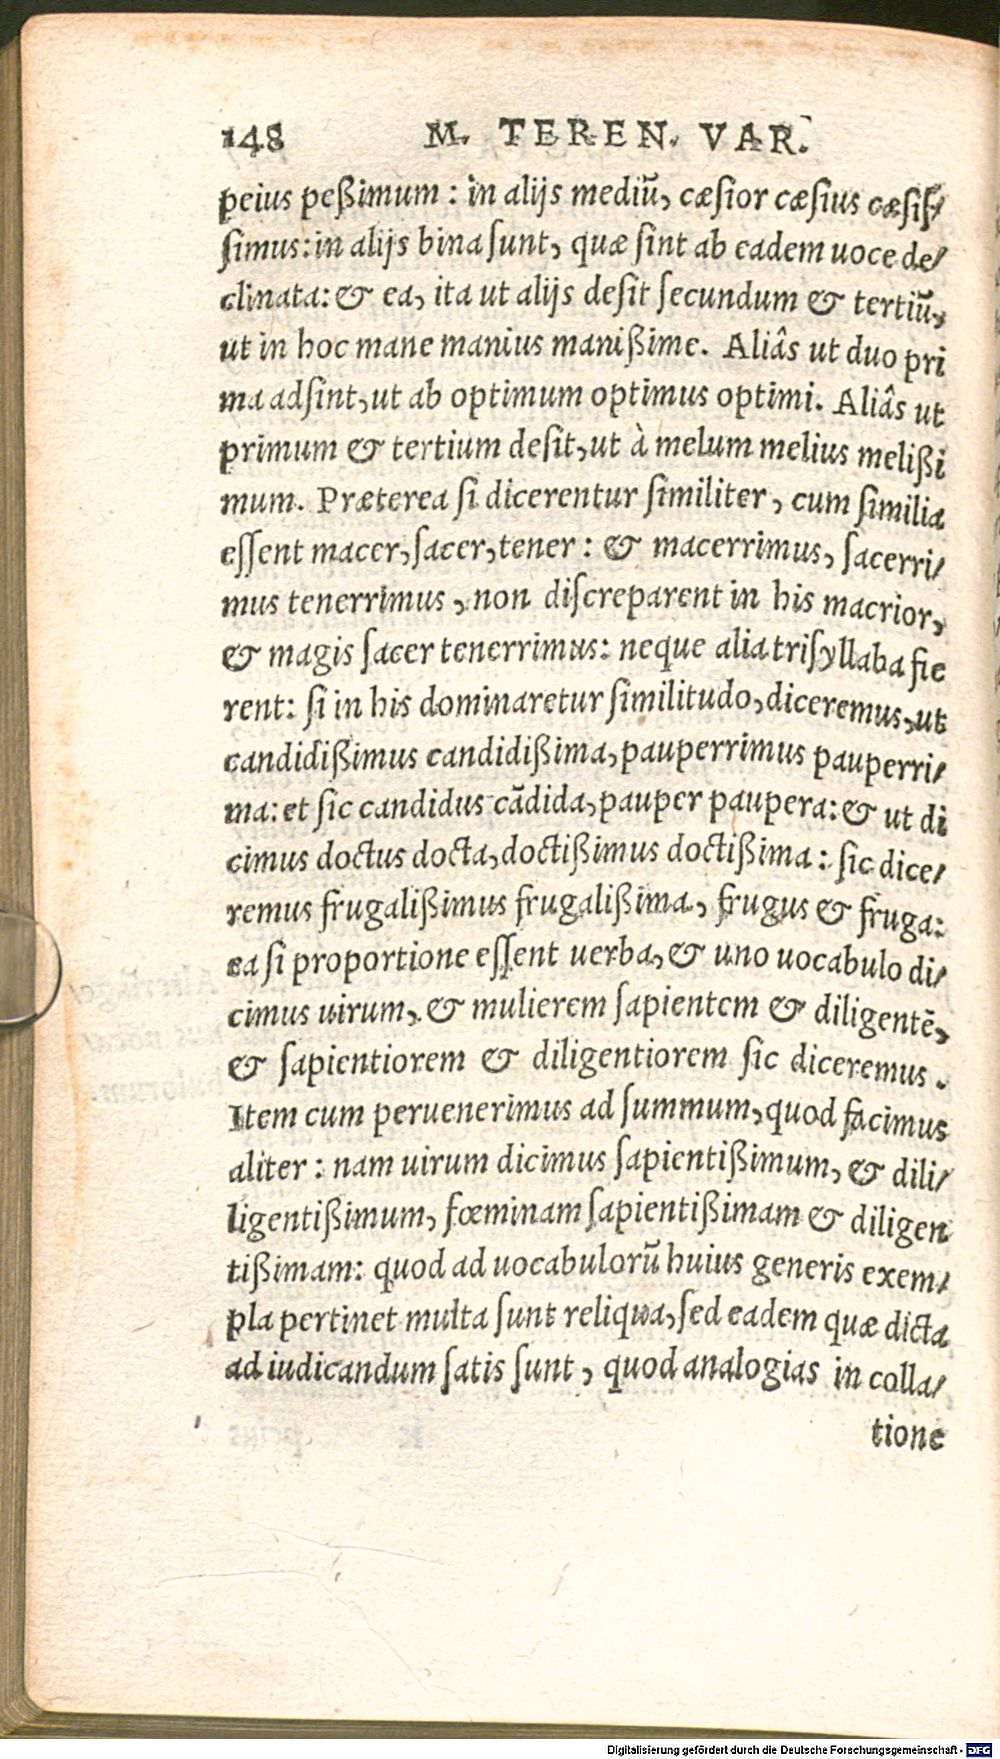 148 M. TEREN. VAR.
peius peßimum : in alijs mediũ, cæſior cæſius cæſiſ⸗
ſimus: in alijs bina ſunt, quæ ſint ab eadem uoce de⸗
clinata: & ea, ita ut alijs deſit ſecundum & tertiũ,
ut in hoc mane manius manißime. Aliâs ut duo pri
ma adſint, ut ab optimum optimus optimi. Aliâs ut
primum & tertium deſit, ut à melum melius melißi
mum. Præterea ſi dicerentur ſimiliter, cum ſimilia
eſſent macer, ſacer, tener : & macerrimus, ſacerri⸗
mus tenerrimus, non diſcreparent in his macrior,
& magis ſacer tenerrimus: neque alia triſyllaba fie
rent: ſi in his dominaretur ſimilitudo, diceremus, ut
candidißimus candidißima, pauperrimus pauperri⸗
ma: et ſic candidus cãdida, pauper paupera: & ut di
cimus doctus docta, doctißimus doctißima : ſic dice⸗
remus frugalißimus frugalißima, frugus & fruga:
ea ſi proportione eſſent uerba, & uno uocabulo di⸗
cimus uirum, & mulierem ſapientem & diligentẽ,
& ſapientiorem & diligentiorem ſic diceremus.
Item cum peruenerimus ad ſummum, quod facimus
aliter : nam uirum dicimus ſapientißimum, & dili⸗
ligentißimum, fœminam ſapientißimam & diligen
tißimam: quod ad uocabulorũ huius generis exem⸗
pla pertinet multa ſunt reliqua, ſed eadem quæ dicta
ad iudicandum ſatis ſunt, quod analogias in colla⸗
tione
Digitalisierung gefördert durch die Deutsche Forschungsgemeinschaft - DFG